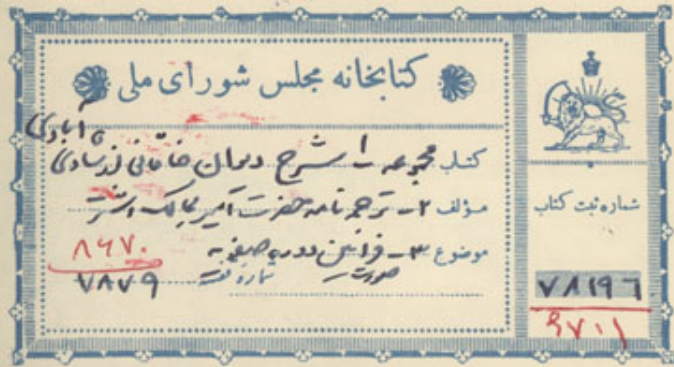 کتابخانه مجلس شورای ملی
کتاب مجموعه ۱- شرح دیوان خاقانی از شادی
آبادی
مؤلف ۲- ترجمه نامه حضرت امیر بمالک اشتر
موضوع ۳- فرامین دوره صفویه
صورت
شماره قفسه
۸۶۷۰
۷۸۷۹
شماره ثبت کتاب
۷۸۱۹۶